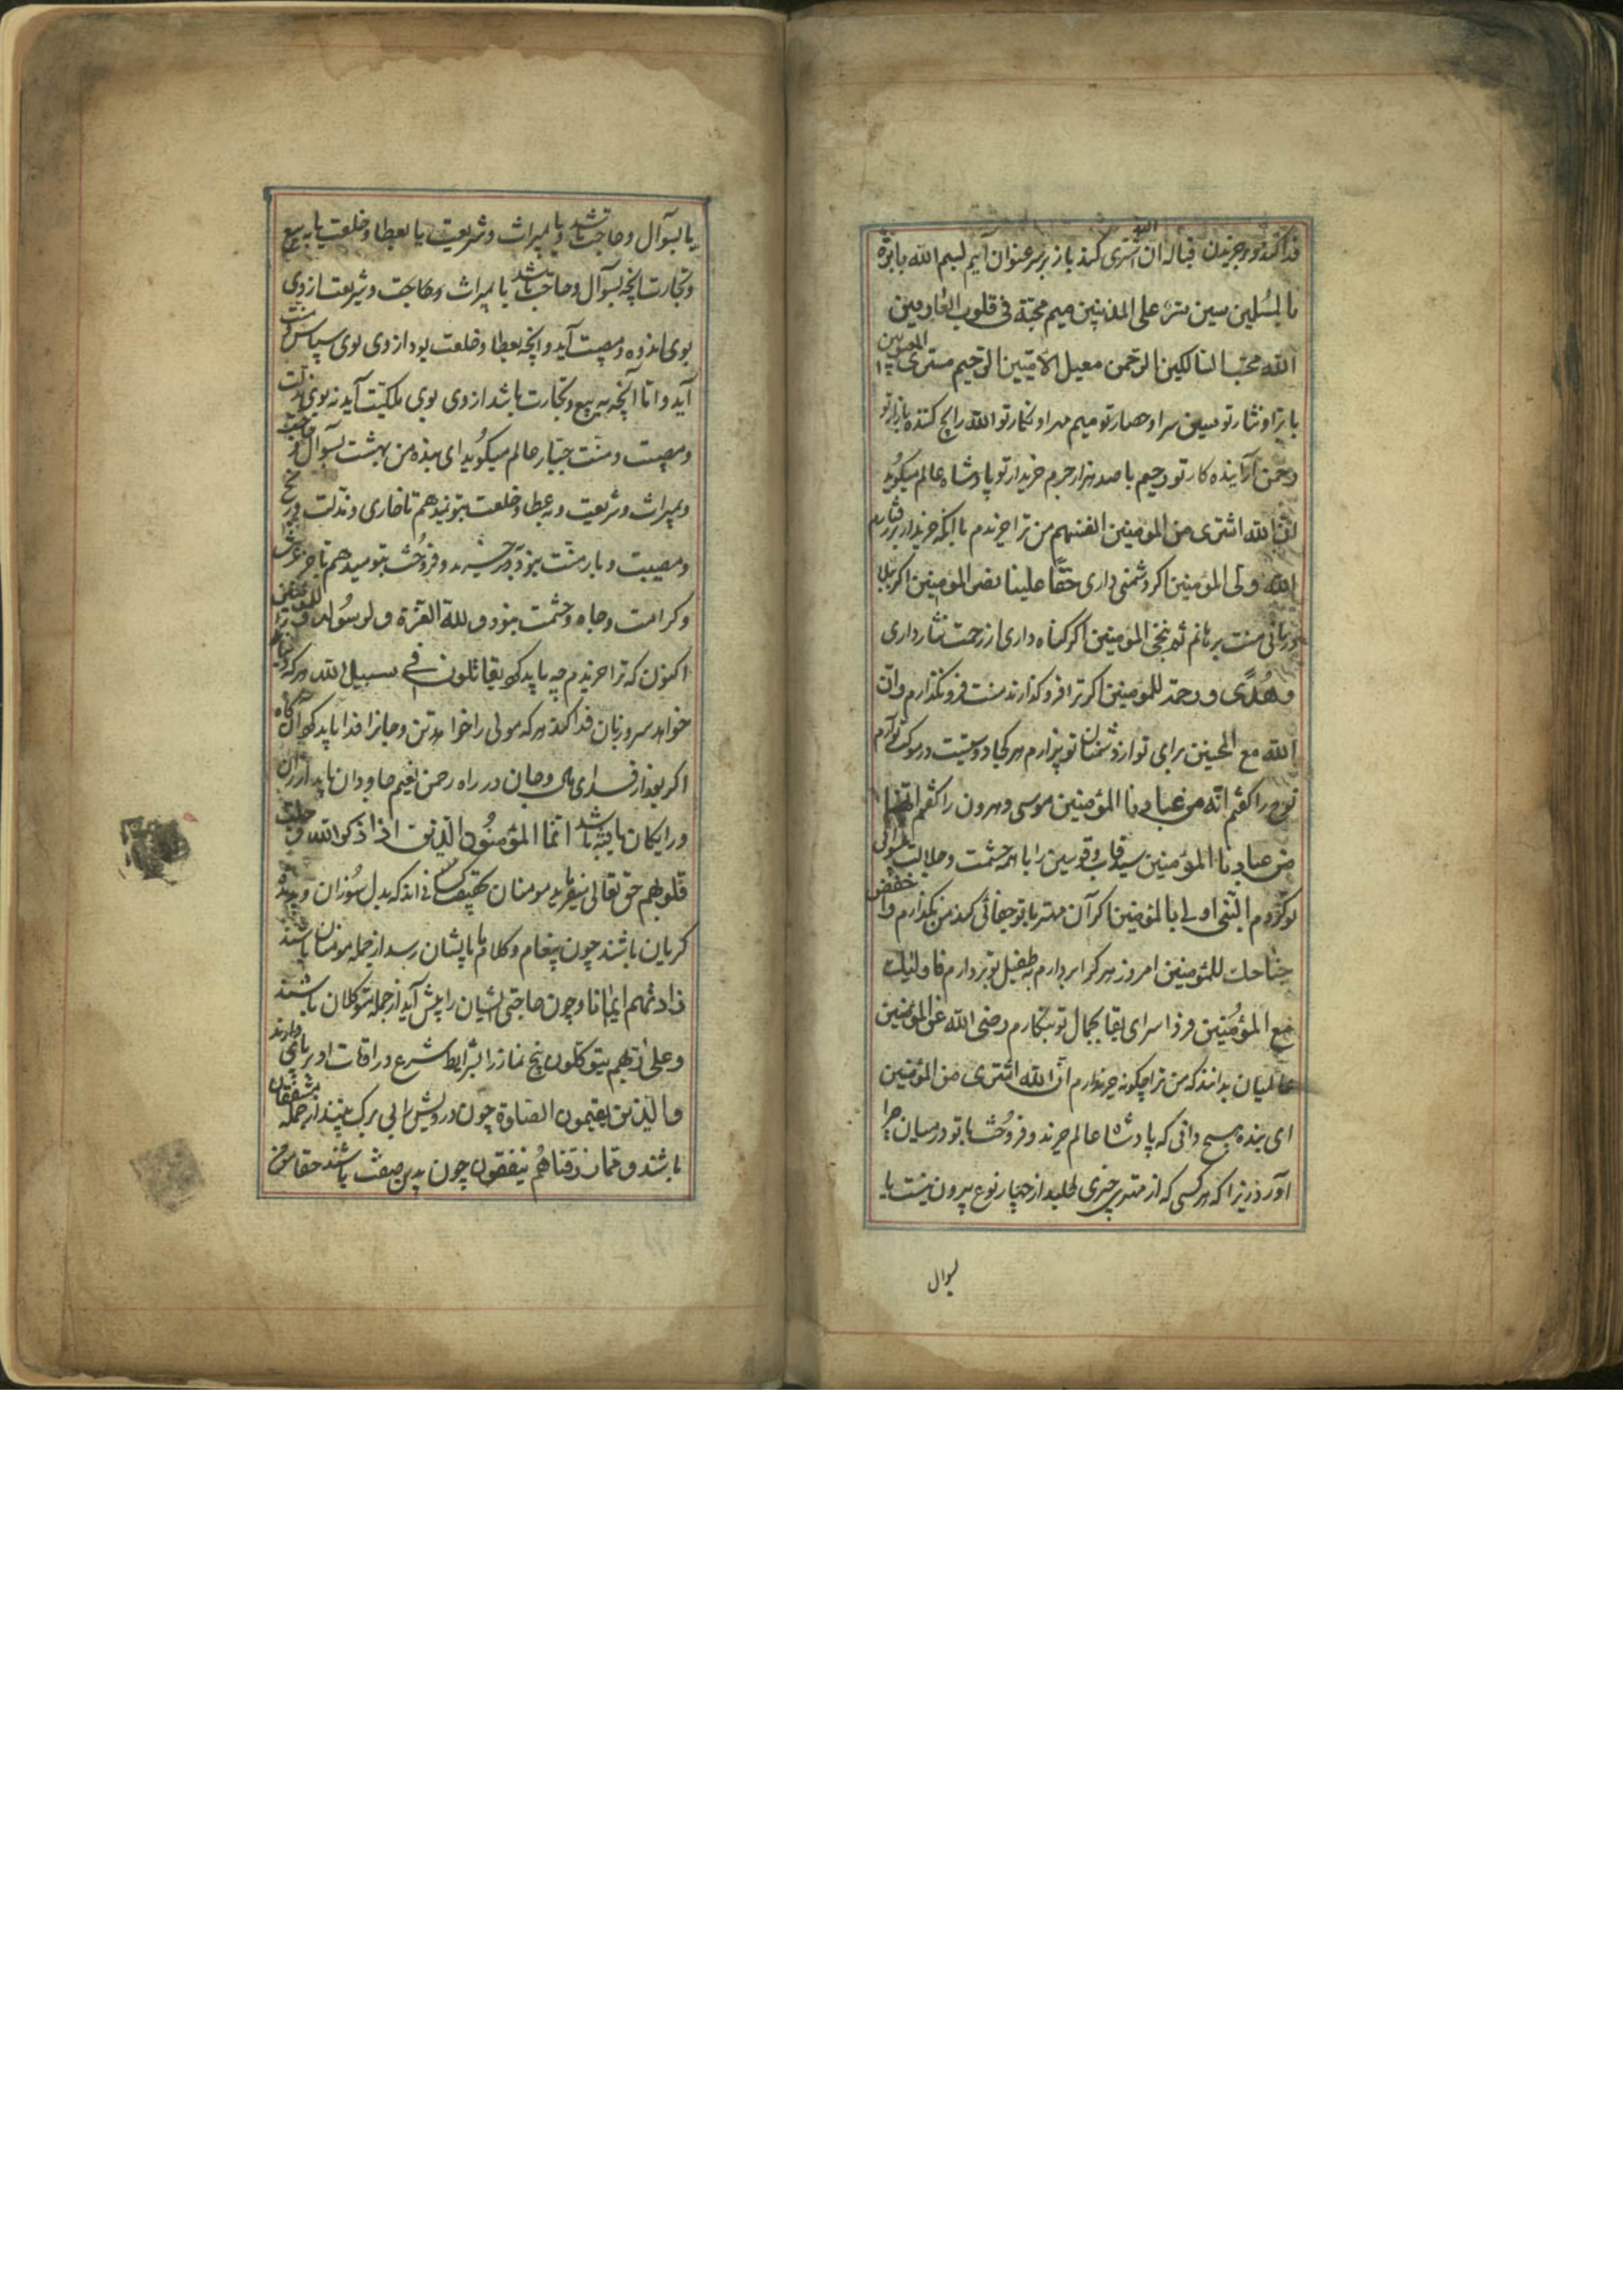 فدا کند و بر خریدن قباله ان الله اشتری کند باز بر سر عنوان آیم بسم الله با برّه
بالمسلین سین ستره علی المذنبین میم محبّة فی قلوب العارفین
الله محبّ السالکین الرّحمن معیل الرّحیم مشتری
بار تو نثار تو سین سر او حصار تو میم مهر او نکار تو الله رایج کننده بازار تو
رحمن آراینده کار تو رحیم با صد هزار جرم خریدار تو پادشاه عالم میکوید
انّ الله اشتری من المؤمنین انفسهم من ترا خریدم با انکه خریدار
الله ولی المؤمنین اکر دشمنی داری حقّا علینا نصر المؤمنین اکر بلا
برهانم ثم ننجی المؤمنین اکر کناه داری از رحمت نثار داری
وهُدًی ورحمة للمؤمنین اکر ترا فرو کذارند منت فرو نکذارم وانّ
الله مع المحسنین برای تو از دشمنان تو بیزارم هر کجا دوستیست
نوح را کفتم انّه من عبادنا المؤمنین موسی وهرون را کفتم انّهما
من عبادنا المؤمنین سید قاب قوسین را با همه حشمت وجلالت
تو کردم النّبی اولی بالمؤمنین اکر آن مهتر با تو جفائی کند من نکذارم واخفض
جناحک للمؤمنین امروز هر کرا بردارم به طفیل تو بردارم فاولئک
مع المؤمنین فردا سرای بقا بجمال تو بنکارم رضی الله عن المؤمنین
عالمیان بدانند که من ترا چکونه خریدارم انّ الله اشتری من المؤمنین
ای بنده هیچ دانی که پادشاه عالم خرید و فروخت با تو در میان چرا
آورد زیرا که هر کسی که از مهتری چیزی طلبد از چهار نوع بیرون نیست یا
بسوال
یا بسوآل وحاجت باشد ویا بمیراث وشریعت یا بعطا وخلعت یا به بیع
وتجارت آنچه بسوآل وحاجت باشد یا بمیراث وحاجت وشریعت از وی
بوی اندوه ومصیبت آید وآنچه بعطا وخلعت بود از وی بوی سپاس ومنت
آید وامّا آنچه به بیع وتجارت باشد از وی بوی ملکیت آید نه بوی مذلت
ومصیبت ومنّت جبّار عالم میکوید ای بنده من بهشت بسوآل وحاجت
وبمیراث وشریعت وبه عطا وخلعت بتو نمیدهم تا خاری ومذلت ورنج
ومصیبت وبار منّت بنود به خرید وفروخت بتو میدهم تا جز عزت
وکرامت وجاه وحشمت بنود ولله العزّة ولرسوله وللمؤمنین
اکنون که ترا خریدم چه باید کرد یقاتلون فی سبیل الله هر که
خواهد سر و زبان فدا کند هر که مولی را خواهد تن وجانرا فدا باید کرد آنکاه
اکر بعد از فدای مال وجان در راه رحمن نعیم جاودان یابد ارزان
ورایکان یافته باشد انّما المؤمنُون الّذین اذا ذکر الله وجلت
قلوبهم حق تعالی میفرماید مومنان بحقیقت کسانی اند که بدل سُوزان وبدیده
کریان باشند چون پیغام وکلام ما بایشان رسد از جمله مومنان باشند
زادتهم ایمانا وچون حاجتی ایشان را پیش آید از جمله متوکلان باشند
وعلی ربّهم یتوکلون پنج نماز را بشرایط شرع در اوقات او بر پای دارند
والّذین یقیمون الصّلوة چون درویش را بی برک بینند از جمله مشفقان
باشند وممّا رزقناهُم ینفقون چون بدین صفت باشند حقا مومن